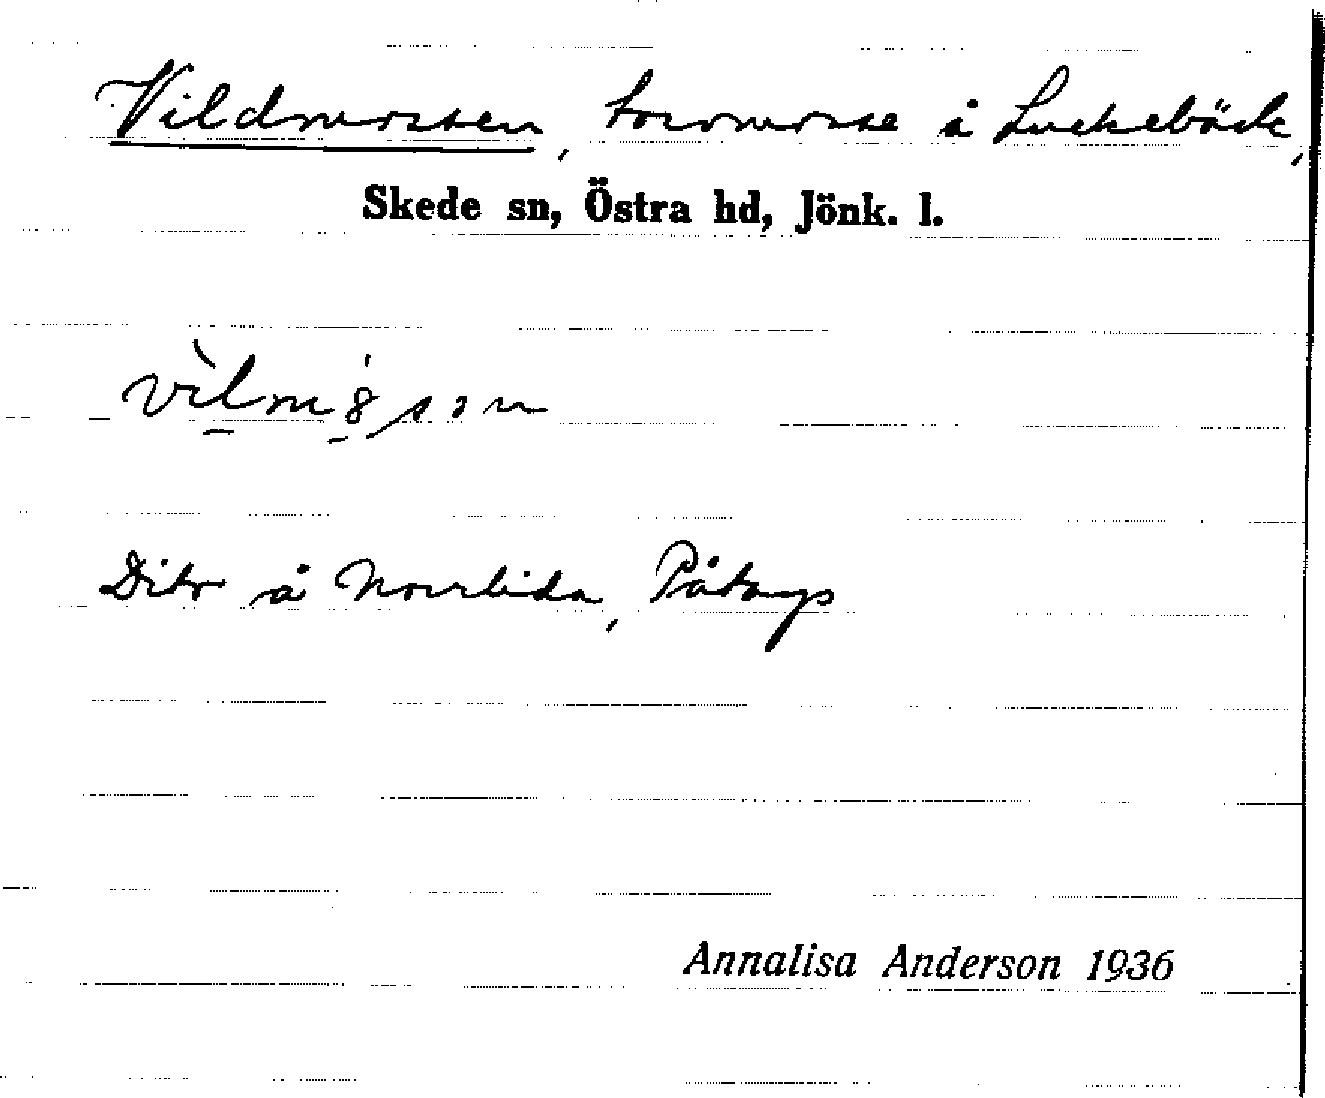 Vildmossen, torvmosse å Luckebäck,
Skede sn, Östra hd, Jönk. l.
Dito å Norrlida, Påtorp
Annalisa Anderson 1936